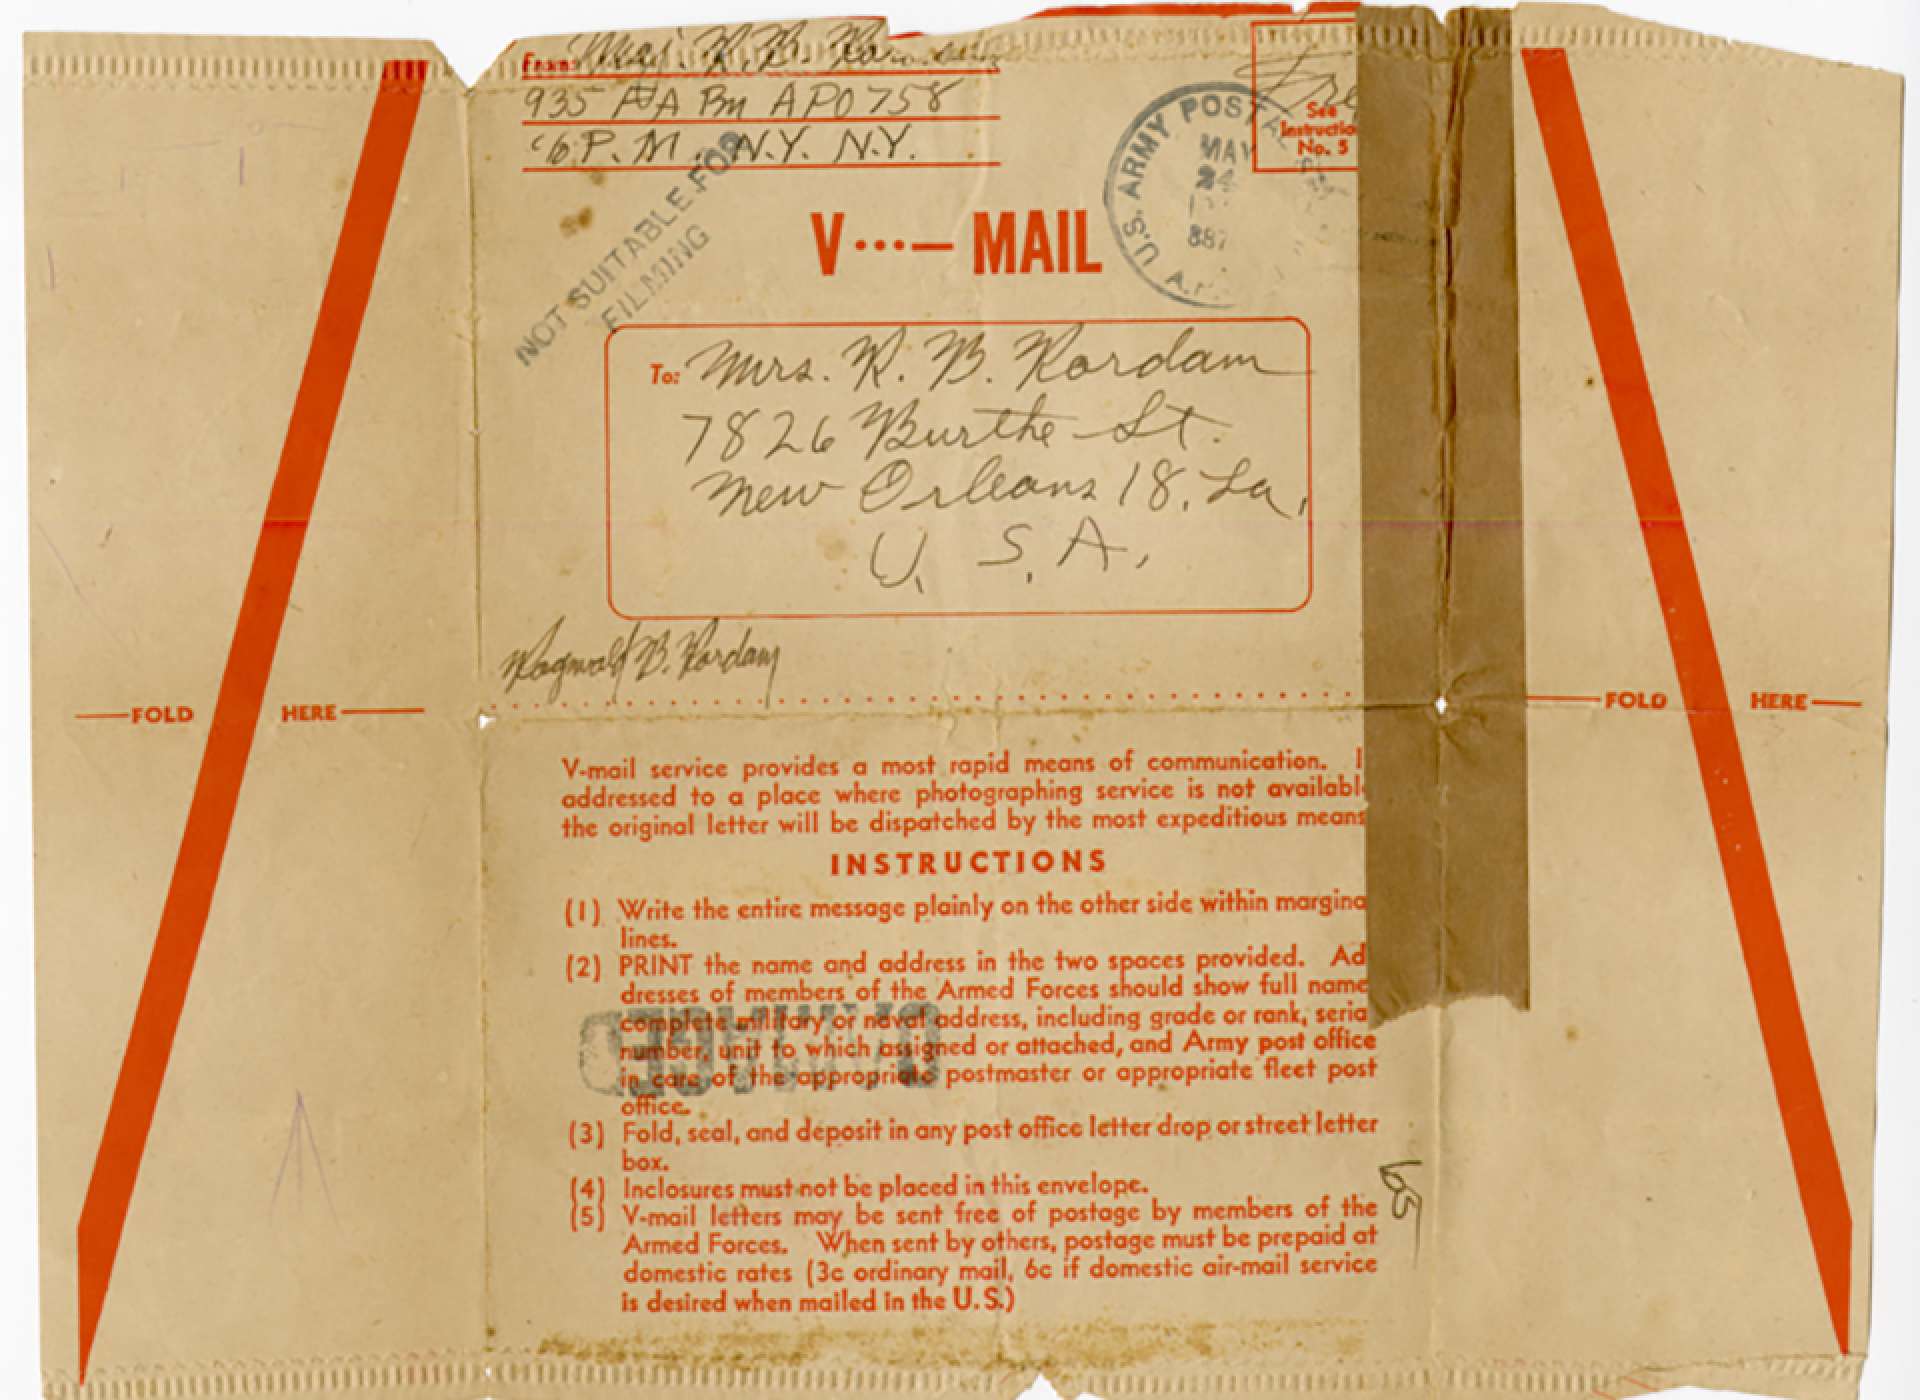 From: Maj. R. B.
935 FA Bn APO 758
% P. M. N.Y. N.Y.
See
Instructio
No. 5
U.S. ARMY POSTAL
MAY
24
887
NOT SUITABLE FOR
FILMING
V ···— MAIL
To: Mrs. R. B. Kordam
7826 Burthe St.
New Orleans 18, La.
U. S. A.
Ragnvald B. Kordam
FOLD HERE
FOLD HERE
V-mail service provides a most rapid means of communication. I
addressed to a place where photographing service is not availabl
the original letter will be dispatched by the most expeditious means
INSTRUCTIONS
(1) Write the entire message plainly on the other side within margina
lines.
(2) PRINT the name and address in the two spaces provided. Ad
dresses of members of the Armed Forces should show full name
complete military or naval address, including grade or rank, seria
number, unit to which assigned or attached, and Army post office
in care of the appropriate postmaster or appropriate fleet post
office.
(3) Fold, seal, and deposit in any post office letter drop or street letter
box.
(4) Inclosures must not be placed in this envelope.
(5) V-mail letters may be sent free of postage by members of the
Armed Forces. When sent by others, postage must be prepaid at
domestic rates (3c ordinary mail, 6c if domestic air-mail service
is desired when mailed in the U. S.)